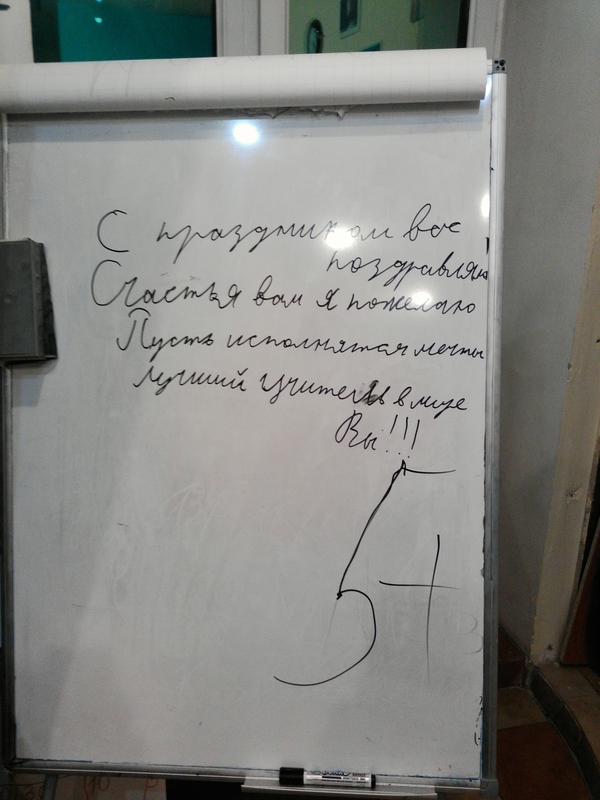 С праздником вас
поздравляю
Счастья вам я пожелаю
Пусть исполнятся мечты
Лучший учитель в мире
Вы!!!
5+